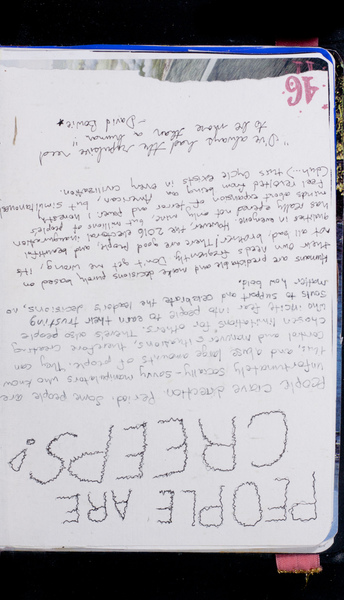 PEOPLE ARE
CREEPS!
People crave direction. Period. Some people are
unfortunately socially-savvy manipulators who know
this, and abuse large amounts of people. They can
control and maneuver situations, therefore creating
chosen invitations for others. There's also people
who incite fear into people to earn their trusting
souls to support and celebrate the leader's decisions, no
matter how bold.
Humans are predictable and make decisions purely based on
their own needs frequently. Don't get me wrong, its
not all bad, brother! There are good people, and beautiful
in anyone. However, the 2016 electoral inauguration
has really opened not only mine, but millions of peoples
minds about expansion of "terror" and I honestly
feel revolted from being an American, but simultaneously
this cycle exists in every civilization.
"I've always had the repulsive need
to be more than a human"
-David Bowie*
46